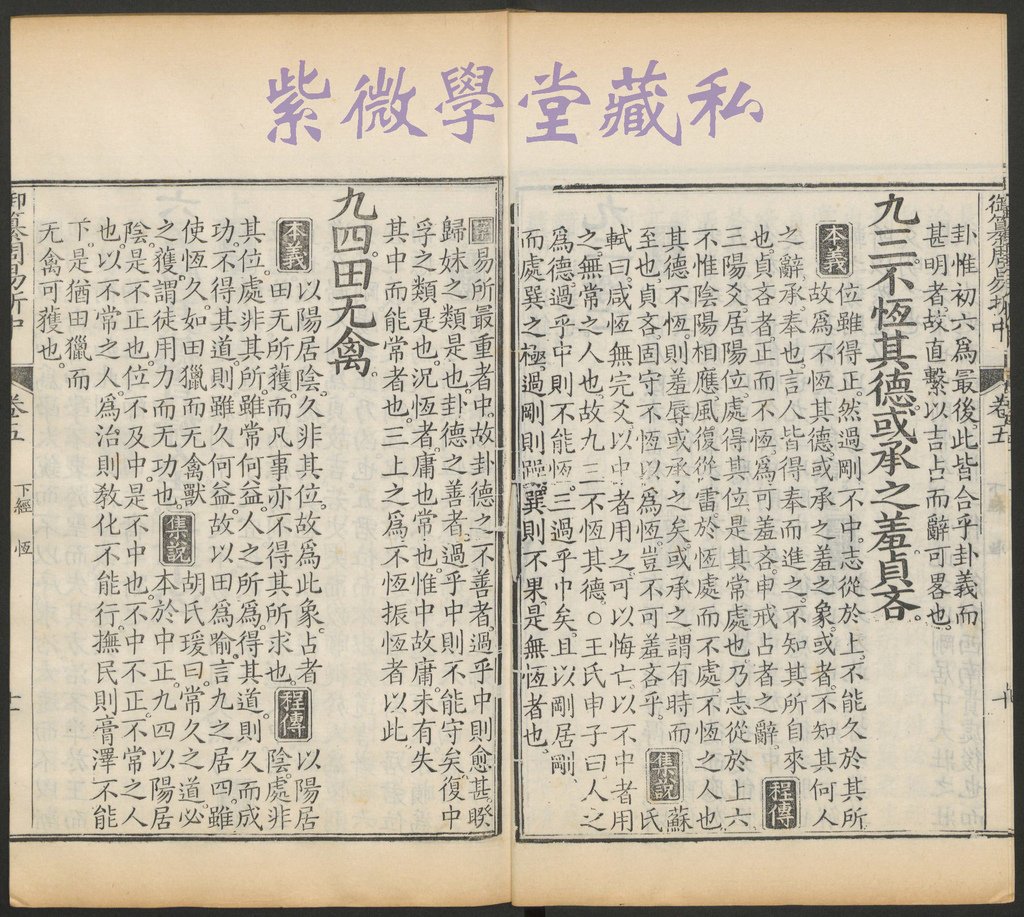 紫微學堂藏私
御纂周易折中 卷五 十
卦惟初六爲最後。此皆合乎卦義而
甚明者。故直繫以吉占而辭可畧也。
九三。不恆其德。或承之羞。貞吝。
本義 位雖得正。然過剛不中。志從於上。不能久於其所。
故爲不恆其德。或承之羞之象。或者。不知其何人
之辭。承。奉也。言人皆得奉而進之。不知其所自來
也。貞吝者。正而不恆。爲可羞吝。申戒占者之辭。 程傳
三陽爻。居陽位。處得其位。是其常處也。乃志從於上六。
不惟陰陽相應。風復從雷。於恆處而不處。不恆之人也。
其德不恆。則羞辱或承之矣。或承之。謂有時而
至也。貞吝。固守不恆以爲恆。豈不可羞吝乎。 集說 蘇氏
軾曰。咸恆無完爻。以中者用之。可以悔亡。以不中者用
之。無常之人也。故九三不恆其德。○王氏申子曰。人之
爲德。過乎中則不能恆。三過乎中矣。且以剛居剛。
而處巽之極。過剛則躁。巽則不果。是無恆者也。
案 易所最重者中。故卦德之不善者。過乎中則愈甚。睽
歸妹之類是也。卦德之善者。過乎中則不能守矣。復中
孚之類是也。況恆者。庸也。常也。惟中故庸。未有失
其中而能常者也。三上之爲不恆振恆者以此。
九四。田无禽。
本義 以陽居陰。久非其位。故爲此象。占者
田无所獲。而凡事亦不得其所求也。 程傳 以陽居陰。處非
其位。處非其所。雖常何益。人之所爲。得其道。則久而成
功。不得其道。則雖久何益。故以田爲喻。言九之居四。雖
使恆久。如田獵而无禽獸
之獲。謂徒用力而无功也。 集說 胡氏瑗曰。常久之道。必
本於中正。九四以陽居
陰。是不正也。位不及中。是不中也。不中不正。不常之人
也。以不常之人。爲治則教化不能行。撫民則膏澤不能
下。是猶田獵而
无禽可獲也。
御纂周易折中 卷五 下經 恆 十一